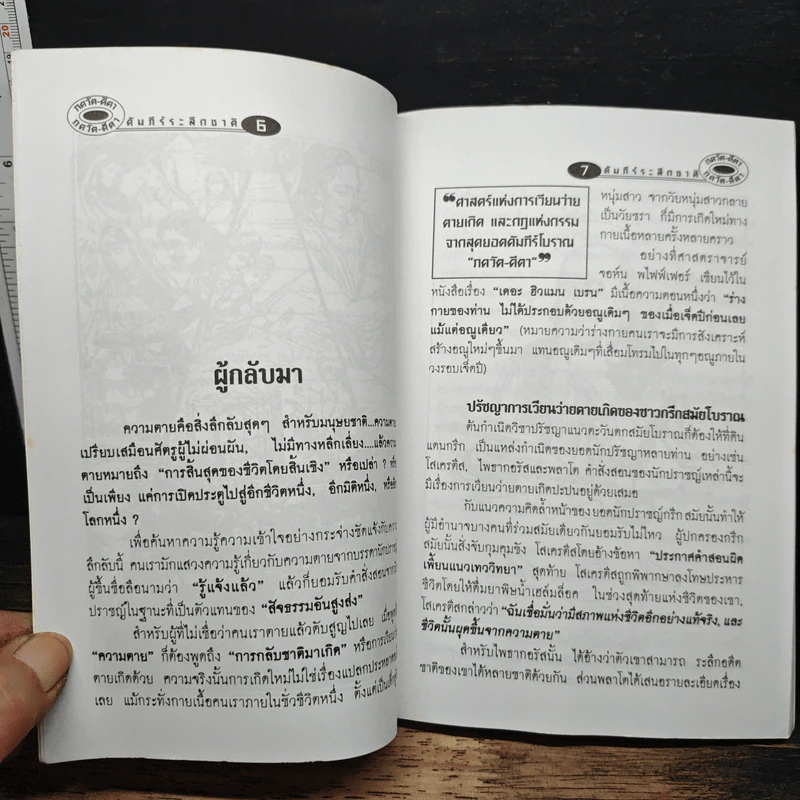 ภควัต-คีตา
ภควัต-คีตา
คัมภีร์ระลึกชาติ 6
ผู้กลับมา
ความตายคือสิ่งลึกลับสุดๆ สำหรับมนุษยชาติ...ความตาย
เปรียบเสมือนศัตรูผู้ไม่ผ่อนผัน, ไม่มีทางหลีกเลี่ยง....แล้วความ
ตายหมายถึง "การสิ้นสุดของชีวิตโดยสิ้นเชิง" หรือเปล่า ?
เป็นเพียง แค่การเปิดประตูไปสู่อีกชีวิตหนึ่ง, อีกมิติหนึ่ง,
โลกหนึ่ง ?
เพื่อค้นหาความรู้ความเข้าใจอย่างกระจ่างชัดแจ้งกับความ
ลึกลับนี้ คนเรามักแสวงความรู้เกี่ยวกับความตายจากบรรดา
ผู้ขึ้นชื่อลือนามว่า "รู้แจ้งแล้ว" แล้วก็ยอมรับคำสั่งสอนจาก
ปราชญ์ในฐานะที่เป็นตัวแทนของ "สัจธรรมอันสูงส่ง"
สำหรับผู้ที่ไม่เชื่อว่าคนเราตายแล้วดับสูญไปเลย เมื่อ
"ความตาย" ก็ต้องพูดถึง "การกลับชาติมาเกิด" หรือการเวียน
ตายเกิดด้วย ความจริงนั้นการเกิดใหม่ไม่ใช่เรื่องแปลกประหลาด
เลย แม้กระทั่งกายเนื้อคนเราภายในชั่วชีวิตหนึ่ง ตั้งแต่เป็น
7 คัมภีร์ระลึกชาติ
ภควัต-คีตา
ภควัต-คีตา
"ศาสตร์แห่งการเวียนว่าย
ตายเกิด และกฎแห่งกรรม
จากสุดยอดคัมภีร์โบราณ
"ภควัต-คีตา""
หนุ่มสาว จากวัยหนุ่มสาวกลาย
เป็นวัยชรา ก็มีการเกิดใหม่ทาง
กายเนื้อหลายครั้งหลายคราว
อย่างที่ศาสตราจารย์
จอห์น พไฟฟ์เฟอร์ เขียนไว้ใน
หนังสือเรื่อง "เดอะ ฮิวแมน เบรน" มีเนื้อความตอนหนึ่งว่า "ร่าง
กายของท่าน ไม่ได้ประกอบด้วยอณูเดิมๆ ของเมื่อเจ็ดปีก่อนเลย
แม้แต่อณูเดียว" (หมายความว่าร่างกายคนเราจะมีการสังเคราะห์
สร้างอณูใหม่ๆขึ้นมา แทนอณูเดิมๆที่เสื่อมโทรมไปในทุกๆอณูภายใน
วงรอบเจ็ดปี)
ปรัชญาการเวียนว่ายตายเกิดของชาวกรีกสมัยโบราณ
ต้นกำเนิดวิชาปรัชญาแนวตะวันตกสมัยโบราณก็ต้องให้ที่ดิน
แดนกรีก เป็นแหล่งกำเนิดของยอดนักปรัชญาหลายท่าน อย่างเช่น
โสเครตีส, ไพธากอรัสและพลาโต คำสั่งสอนของนักปราชญ์เหล่านี้จะ
มีเรื่องการเวียนว่ายตายเกิดปะปนอยู่ด้วยเสมอ
กับแนวความคิดล้ำหน้าของยอดนักปราชญ์กรีกสมัยนั้นทำให้
ผู้มีอำนาจบางคนที่ร่วมสมัยเดียวกันยอมรับไม่ไหว ผู้ปกครองกรีก
สมัยนั้นสั่งจับกุมคุมขัง โสเครตีสโดยอ้างข้อหา "ประกาศคำสอนผิด
เพี้ยนแนวเทววิทยา" สุดท้าย โสเครตีสถูกพิพากษาลงโทษประหาร
ชีวิตโดยให้ดื่มยาพิษน้ำเฮล์มล็อค ในช่วงสุดท้ายแห่งชีวิตของเขา,
โสเครตีสกล่าวว่า "ฉันเชื่อมั่นว่ามีสภาพแห่งชีวิตอีกอย่างแท้จริง, และ
ชีวิตนั้นผุดขึ้นจากความตาย"
สำหรับไพธากอรัสนั้น ได้อ้างว่าตัวเขาสามารถ ระลึกอดีต
ชาติของเขาได้หลายชาติด้วยกัน ส่วนพลาโตได้เสนอรายละเอียดเรื่อง